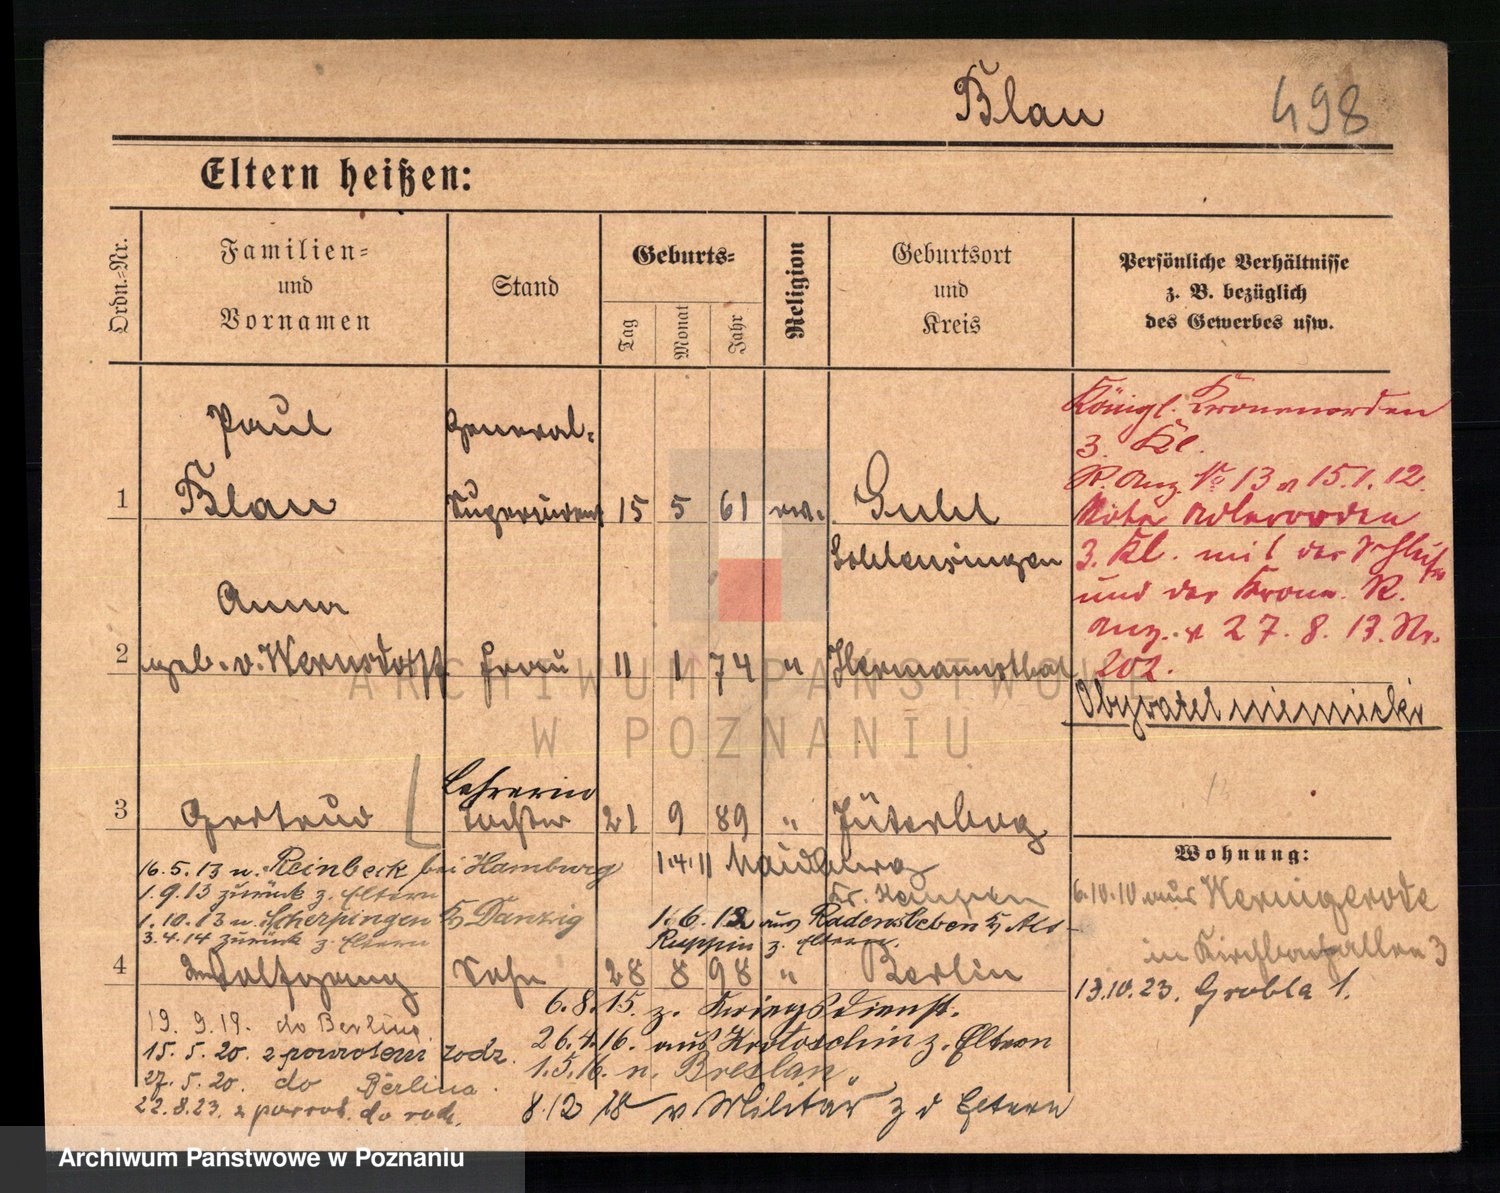 Blau 498
Eltern heißen:
Ordn.-Nr.
Familien-
und
Vornamen
Stand
Geburts-
Tag
Monat
Jahr
Religion
Geburtsort
und
Kreis
Persönliche Verhältnisse
z. B. bezüglich
des Gewerbes usw.
Paul General-
1 Blau 15 5 61 ev.
Schleusingen
Königl. Kronenorden
3. Kl.
R. Anz. No 13 v 15.1.12.
Rote Adlerorden
3. Kl. mit der Schleife
und der Krone. R.
Anz. v 27. 8. 13. Nr.
202.
Obywatel niemiecki
Anna
2 geb. v. Wernsdorff Frau 11 1 74 " Hermannsthal
Lehrerin
3 Gertrud Tochter 21 9 89 " Jüterbog
16.5.13 n. Reinbeck bei Hamburg
1.9.13 zurück z. Eltern
1.10.13 n. Scherpingen b/ Danzig
3.4.14 zurück z. Eltern
1.4.11
1.6.12 aus Radensleben b/ Alt-
Ruppin z. Eltern.
4 Wolfgang Sohn 28 8 98 " Berlin
6.8.15. z. Kriegsdienst.
26.4.16. aus Krotoschin z. Eltern
1.5.16. n. Breslau
8.12 18 v Militär z d Eltern
19. 9.19. do Berlina
15. 5. 20. z powrotem rodz.
27. 5. 20. do Berlina.
22.8.23. z powrot. do rodz.
Wohnung:
6.10.10 aus Wernigerode
in Kirchbachallee 3
13.10.23. Grobla 1.
ARCHIWUM PAŃSTWOWE
W POZNANIU
Archiwum Państwowe w Poznaniu